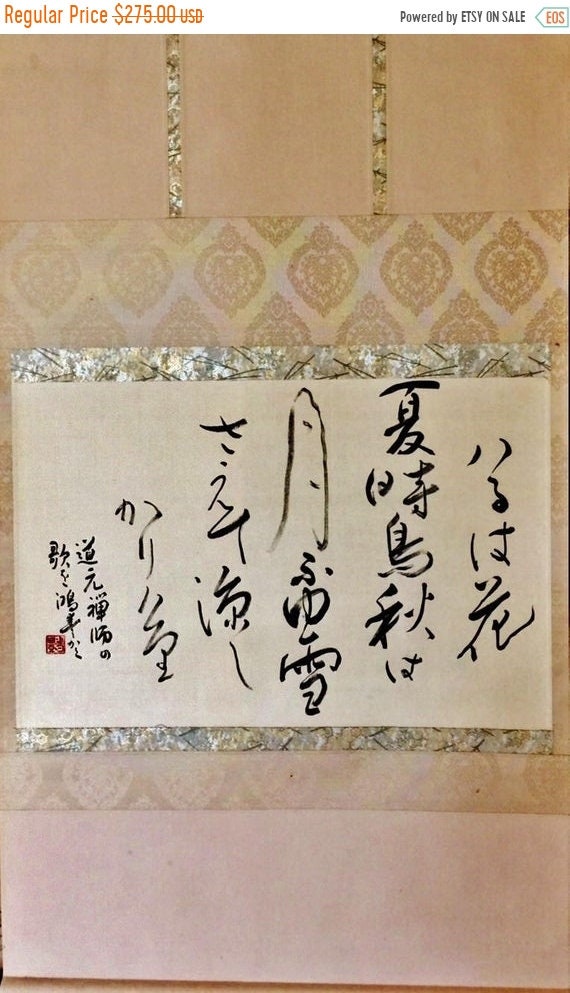 Regular Price $275.00 USD
Powered by ETSY ON SALE
EOS
ハるは花
夏時鳥秋は
月ふゆ雪
さえて涼し
かりけり
道元禅師の
歌を